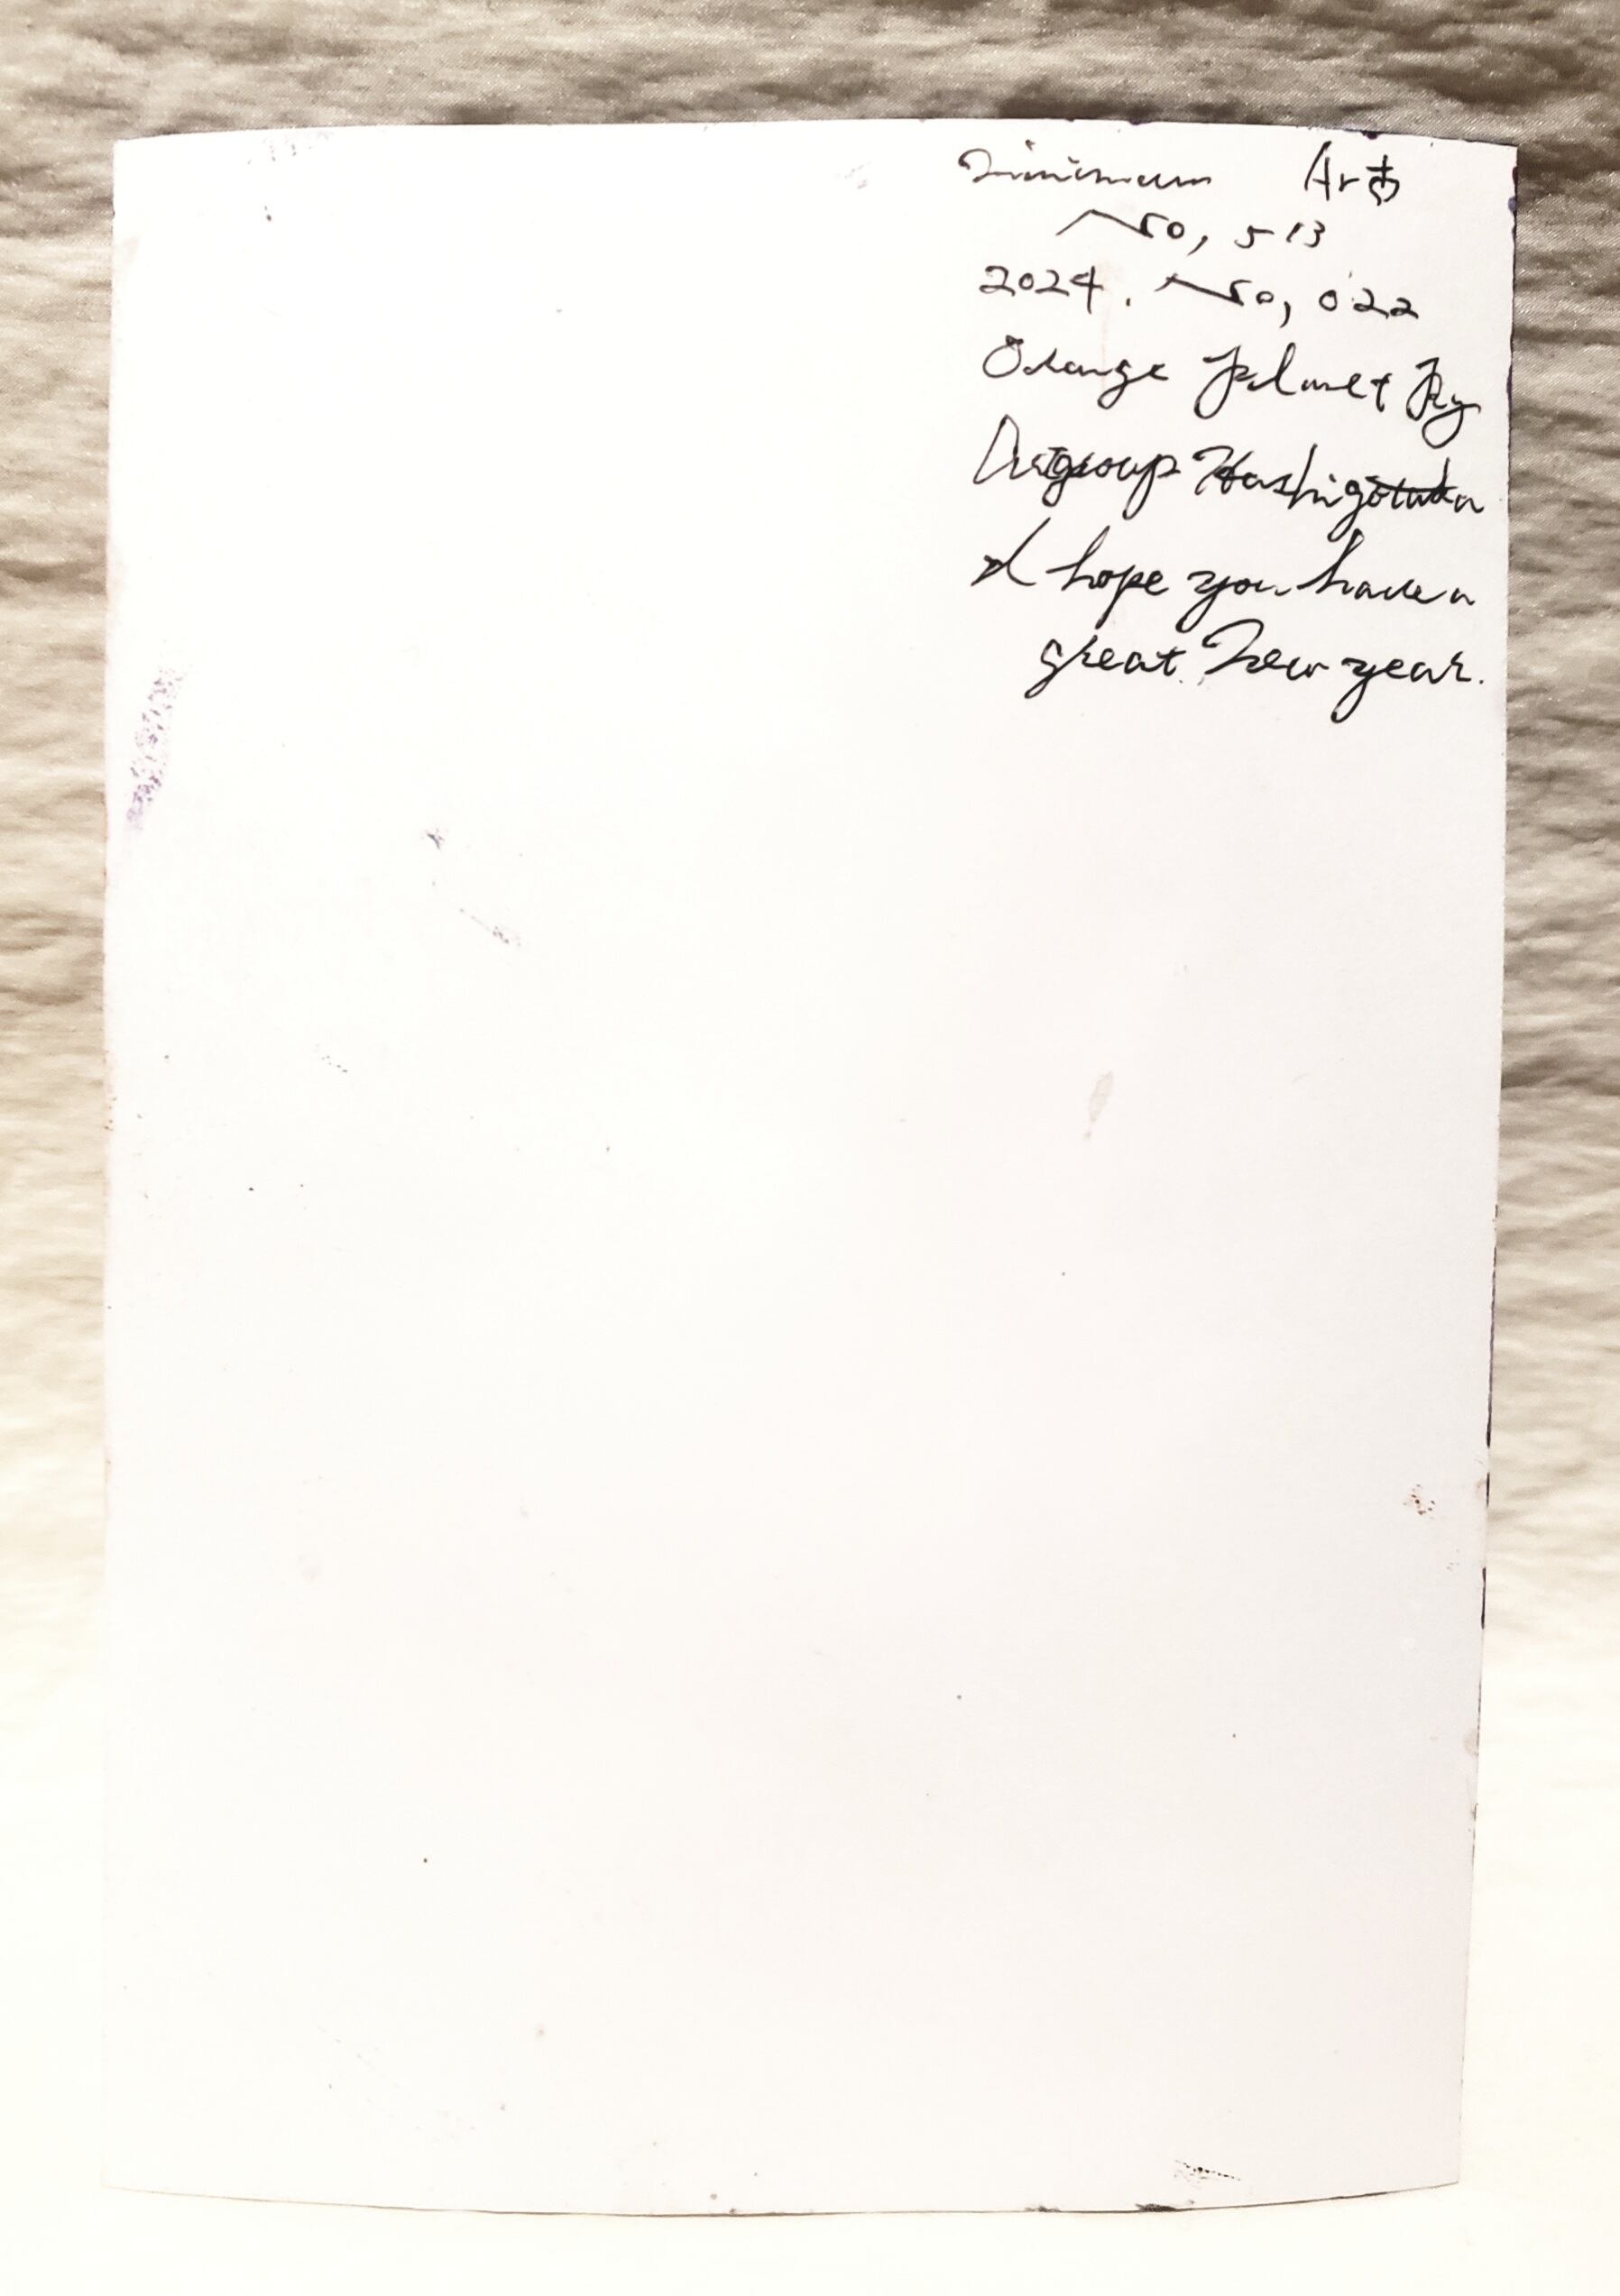 Minimum Art
No, 513
2024. No, 022
Orange Planet By
Artgroup Hashigotaka
I hope you have a
great New year.